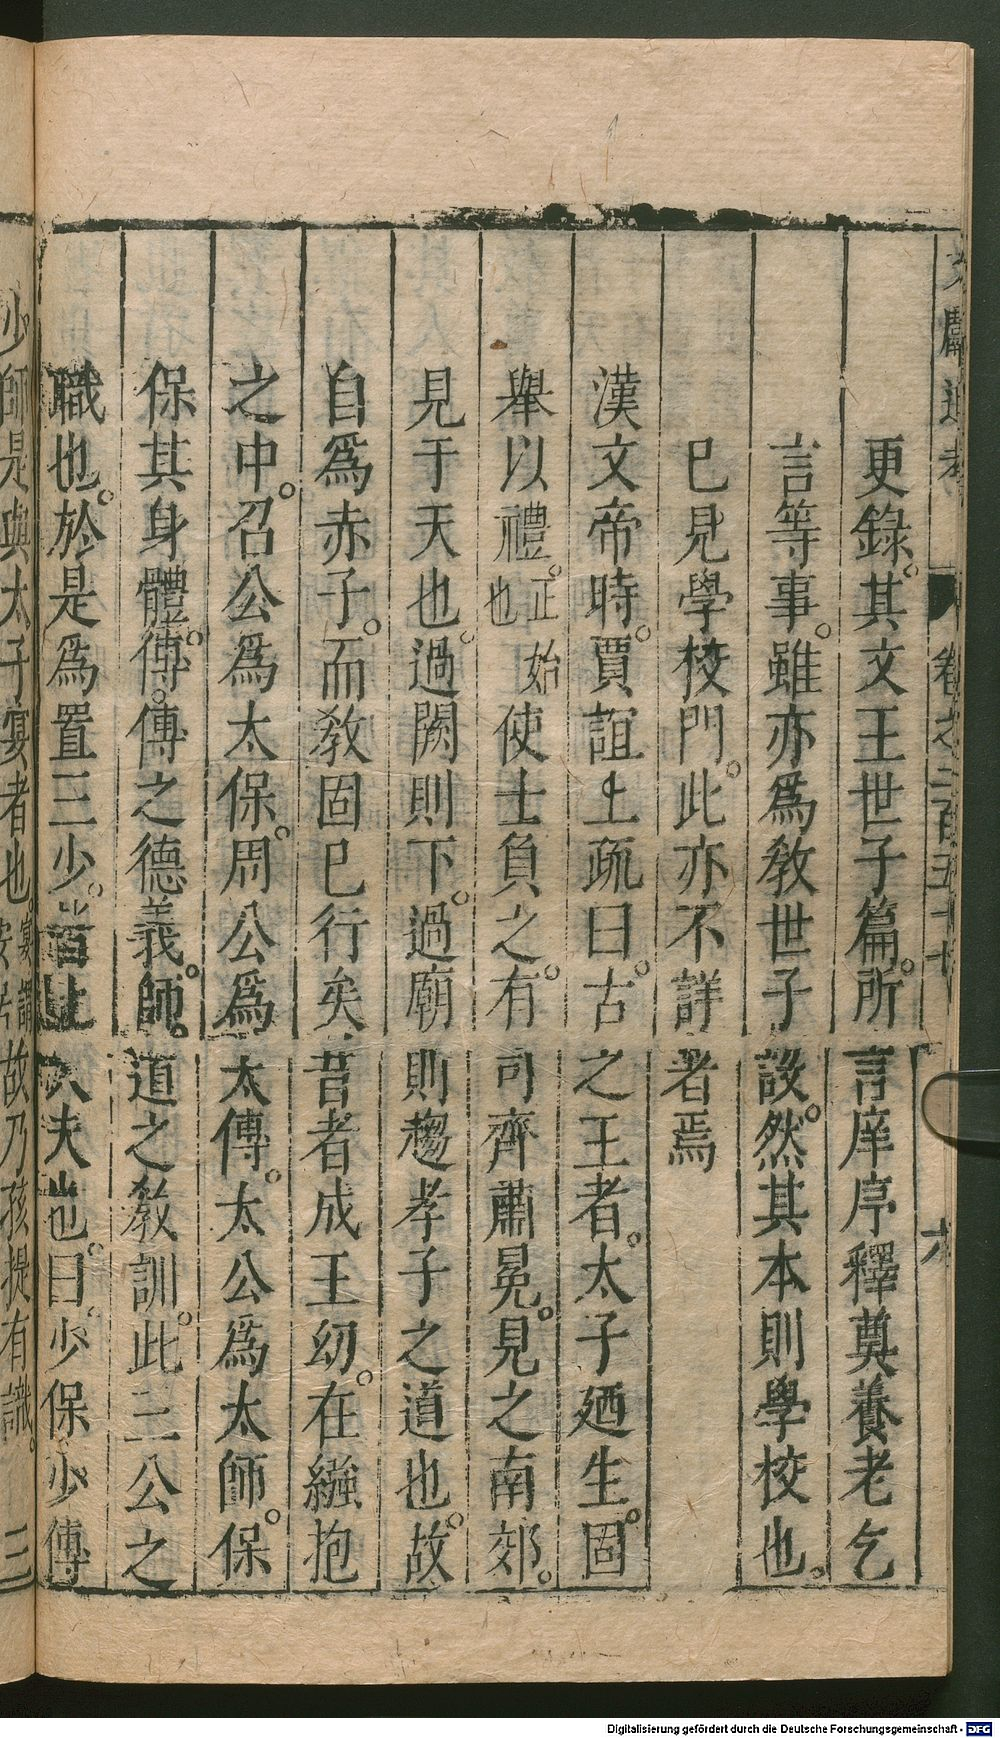 文獻通考 卷之二百五十七 六
更錄。其文王世子篇。所言庠序釋奠養老乞
言等事。雖亦爲敎世子設。然其本則學校也。
已見學校門。此亦不詳者焉
漢文帝時。賈誼上疏曰。古之王者。太子廼生。固
舉以禮。正始也使士負之。有司齊肅冕。見之南郊。
見于天也。過闕則下。過廟則趨孝子之道也。故
自爲赤子。而敎固已行矣昔者成王幼。在繦抱
之中。召公爲太保。周公爲太傅。太公爲太師。保
保其身體。傅。傅之德義。師。道之敎訓。此三公之
職也。於是爲置三少。皆上大夫也。曰。少保少傅
少師是與太子宴者也。宴謂故乃孩提有識。三
Digitalisierung gefördert durch die Deutsche Forschungsgemeinschaft - DFG